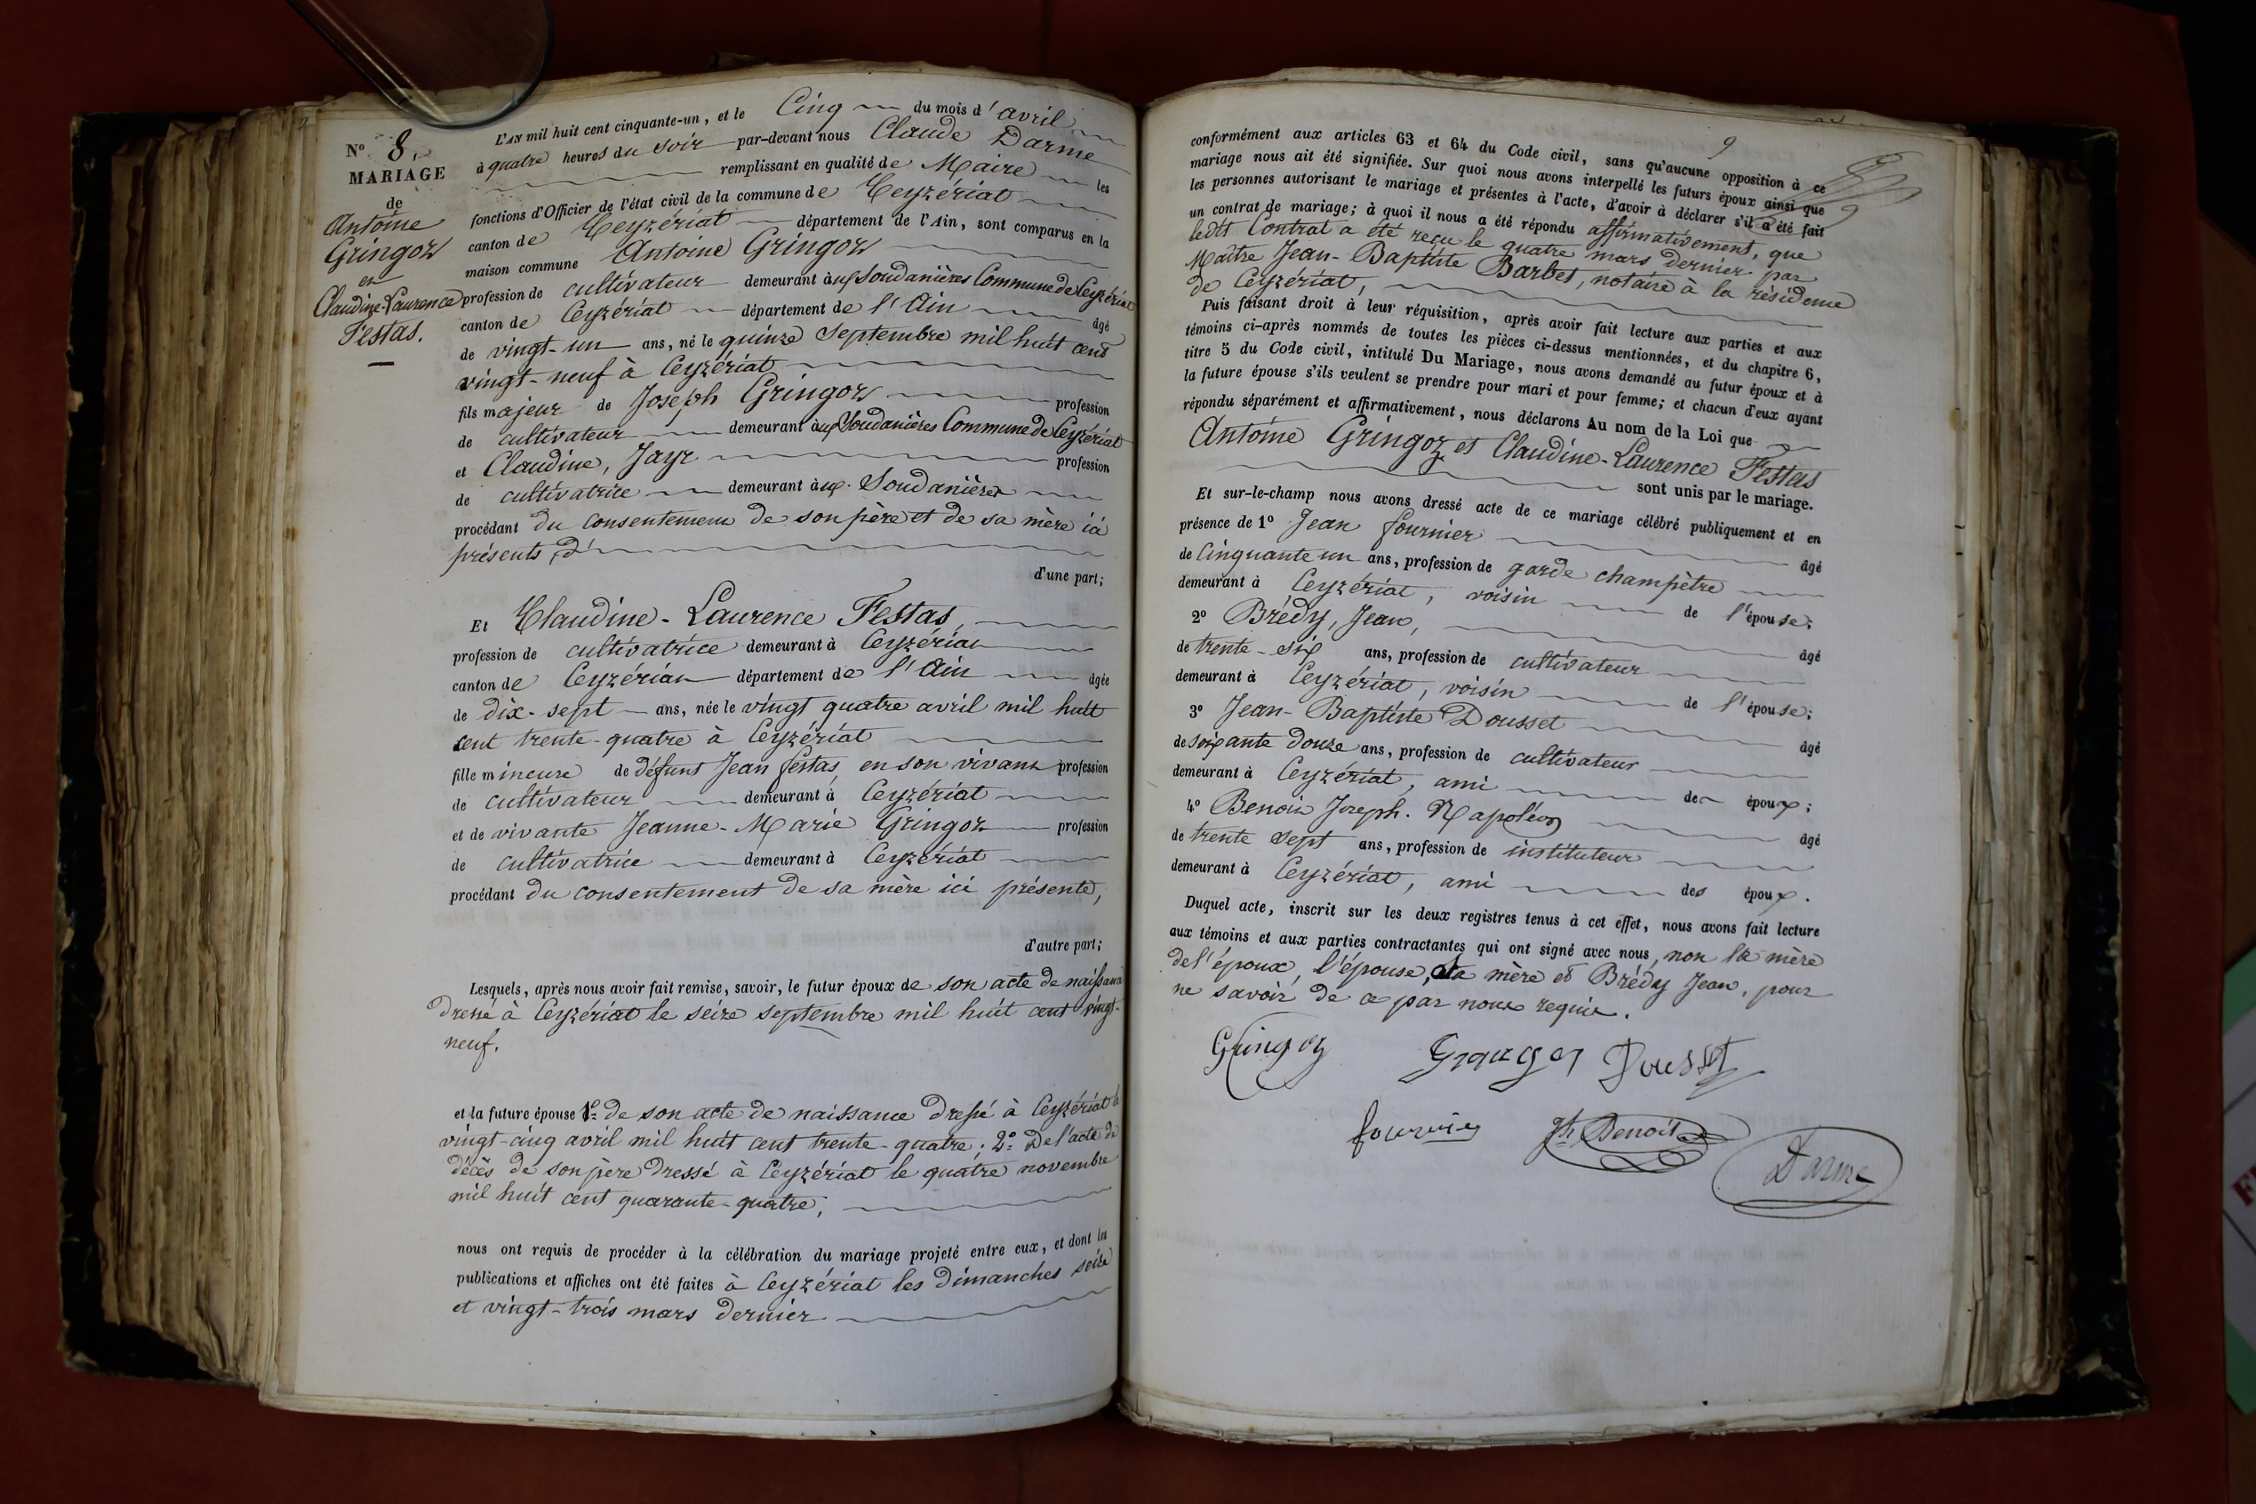 N° 8.
MARIAGE
de
Antoine
Gringoz
en
Claudine-Laurence
Festas.
L'AN mil huit cent cinquante-un, et le Cinq du mois d'avril
à quatre heures du soir par-devant nous Claude Darme
remplissant en qualité de Maire les
fonctions d'Officier de l'état civil de la commune de Ceyzériat
canton de Ceyzériat département de l'Ain, sont comparus en la
maison commune Antoine Gringoz
profession de cultivateur demeurant aux Soudanières Commune de Ceyzériat
canton de Ceyzériat département de l'Ain âgé
de vingt-un ans, né le quinze Septembre mil huit cent
vingt-neuf à Ceyzériat
fils majeur de Joseph Gringoz profession
de cultivateur demeurant aux Soudanières Commune de Ceyzériat
et Claudine, Jayr profession
de cultivatrice demeurant aux Soudanières
procédant du consentement de son père et de sa mère ici
présents, d'
d'une part;
Et Claudine-Laurence Festas,
profession de cultivatrice demeurant à Ceyzériat
canton de Ceyzériat département de l'Ain âgée
de dix-sept ans, née le vingt quatre avril mil huit
cent trente-quatre à Ceyzériat
fille mineure de défunt Jean Festas en son vivant profession
de cultivateur demeurant à Ceyzériat
et de vivante Jeanne-Marie Gringoz profession
de cultivatrice demeurant à Ceyzériat
procédant du consentement de sa mère ici présente,
d'autre part;
Lesquels, après nous avoir fait remise, savoir, le futur époux de son acte de naissance
dressé à Ceyzériat le seize septembre mil huit cent vingt-
neuf.
et la future épouse 1° de son acte de naissance dressé à Ceyzériat le
vingt-cinq avril mil huit cent trente-quatre; 2° De l'acte de
décès de son père dressé à Ceyzériat le quatre novembre
mil huit cent quarante-quatre;
nous ont requis de procéder à la célébration du mariage projeté entre eux, et dont les
publications et affiches ont été faites à Ceyzériat les dimanches seize
et vingt-trois mars dernier
9
conformément aux articles 63 et 64 du Code civil, sans qu'aucune opposition à ce
mariage nous ait été signifiée. Sur quoi nous avons interpellé les futurs époux ainsi que
les personnes autorisant le mariage et présentes à l'acte, d'avoir à déclarer s'il a été fait
un contrat de mariage; à quoi il nous a été répondu affirmativement, que
ledit Contrat a été reçu le quatre mars dernier par
Maître Jean-Baptiste Barbet, notaire à la résidence
de Ceyzériat,
Puis faisant droit à leur réquisition, après avoir fait lecture aux parties et aux
témoins ci-après nommés de toutes les pièces ci-dessus mentionnées, et du chapitre 6,
titre 5 du Code civil, intitulé Du Mariage, nous avons demandé au futur époux et à
la future épouse s'ils veulent se prendre pour mari et pour femme; et chacun d'eux ayant
répondu séparément et affirmativement, nous déclarons Au nom de la Loi que
Antoine Gringoz et Claudine-Laurence Festas
sont unis par le mariage.
Et sur-le-champ nous avons dressé acte de ce mariage célébré publiquement et en
présence de 1° Jean fournier âgé
de Cinquante un ans, profession de garde champêtre
demeurant à Ceyzériat, voisin de l'épouse;
2° Brédy, Jean, âgé
de trente-six ans, profession de cultivateur
demeurant à Ceyzériat, voisin de l'épouse;
3° Jean-Baptiste Dousset âgé
de soixante douze ans, profession de cultivateur
demeurant à Ceyzériat, ami des époux;
4° Benoit Joseph. Napoléon âgé
de trente sept ans, profession de instituteur
demeurant à Ceyzériat, ami des époux.
Duquel acte, inscrit sur les deux registres tenus à cet effet, nous avons fait lecture
aux témoins et aux parties contractantes qui ont signé avec nous, non la mère
de l'époux, l'épouse, sa mère et Brédy Jean, pour
ne savoir de ce par nous requis.
Gringoz Gringoz Dousset
fournier Jh Benoit
Darme